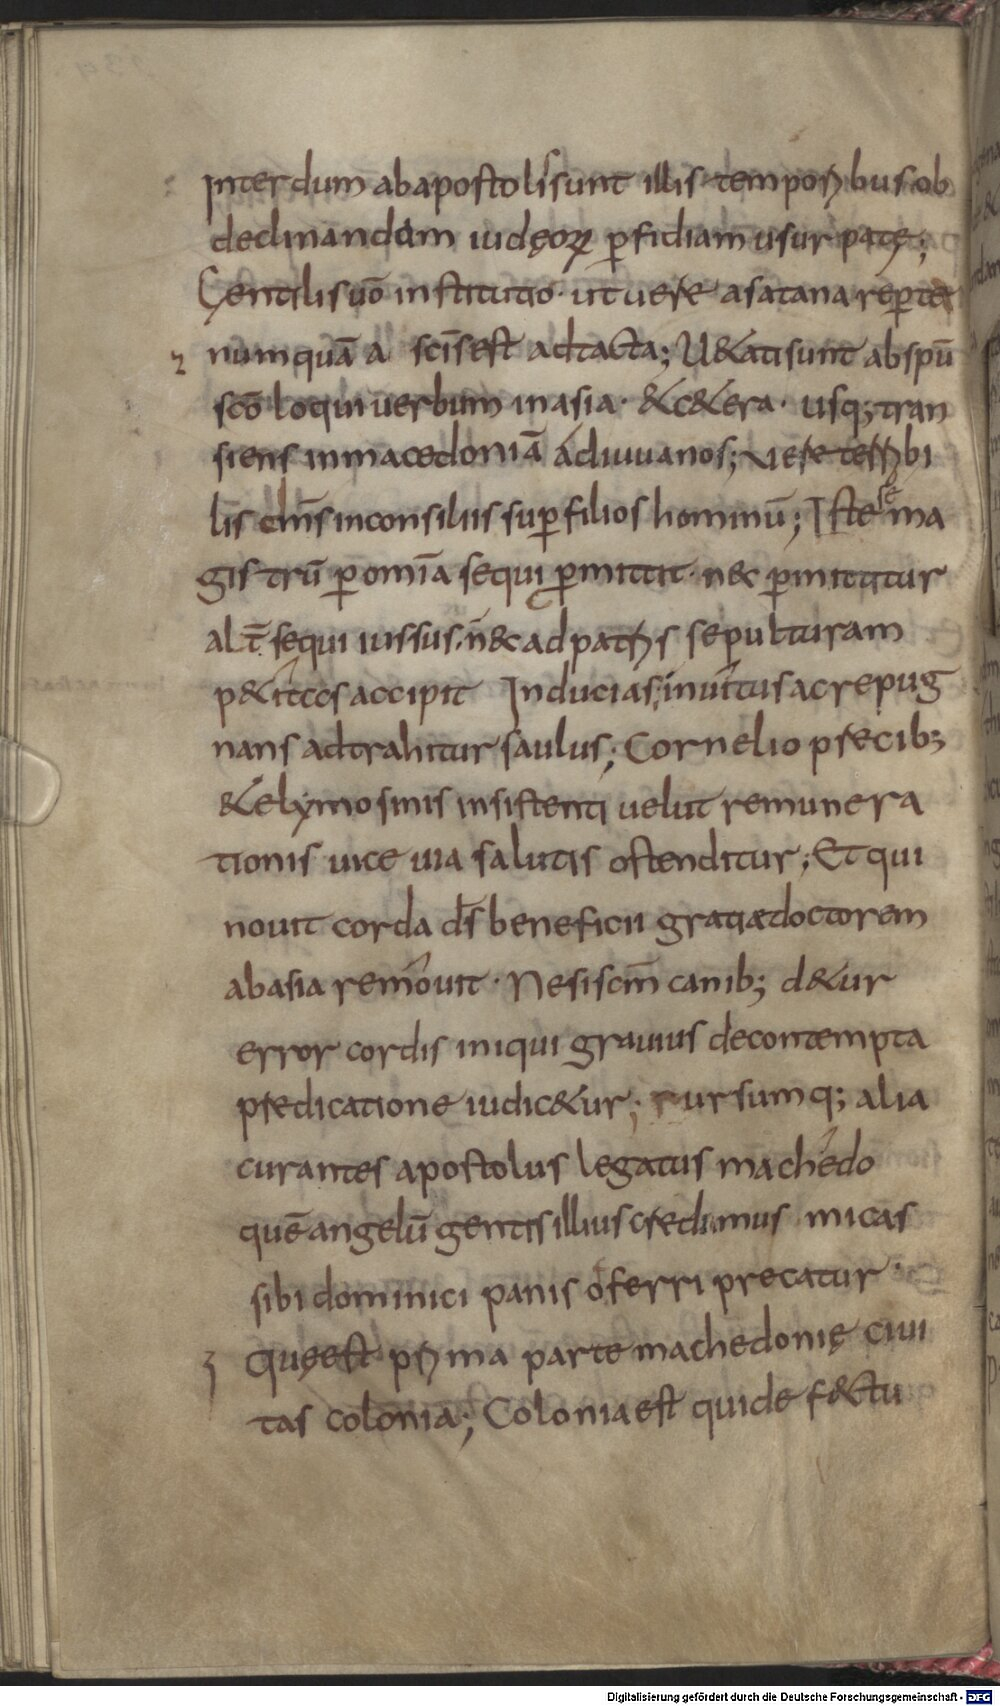 Interdum ab apostolis sunt illis temporibus ob
declinandam iudęorꝝ ꝑfidiam usurpatę;
Gentilis uō institutio ut uere a satana reperta
numquā a sc̄is est adtacta; U&ati sunt ab spū
sc̄o loqui uerbum in asia · &c&era · usq; tran
siens in macedoniā ádiuua nos; uere terribi
lis dn̄s in consiliis suꝑ filios hominū; Iste se ma
gistrū ꝑ om̄ia sequi ꝑmittit · nec ꝑmittitur
alt̄ sequi iussus · n̄ & ad patris sepulturam
p&itas accipit Inducias, inuitus ac repug
nans adtrahitur saulus; Cornelio precib;
& elymosinis insistenti uelut remunera
tionis uice uia salutis ostenditur; Et qui
nouit corda ds̄ beneficii gratia doctorem
ab asia remouit · Ne si sc̄m canib; d&ur
error cordis iniqui grauius de contempta
predicatione iudic&ur; rursumq; alia
curantes apostolus legatus machedo
quē angelū gentis illius credimus micas
sibi dominici panis oferri precatur ·
3 Quę est prima parte machedonię ciui
tas colonia; Colonia est quide f&ctu
2
DFG
Digitalisierung gefördert durch die Deutsche Forschungsgemeinschaft -